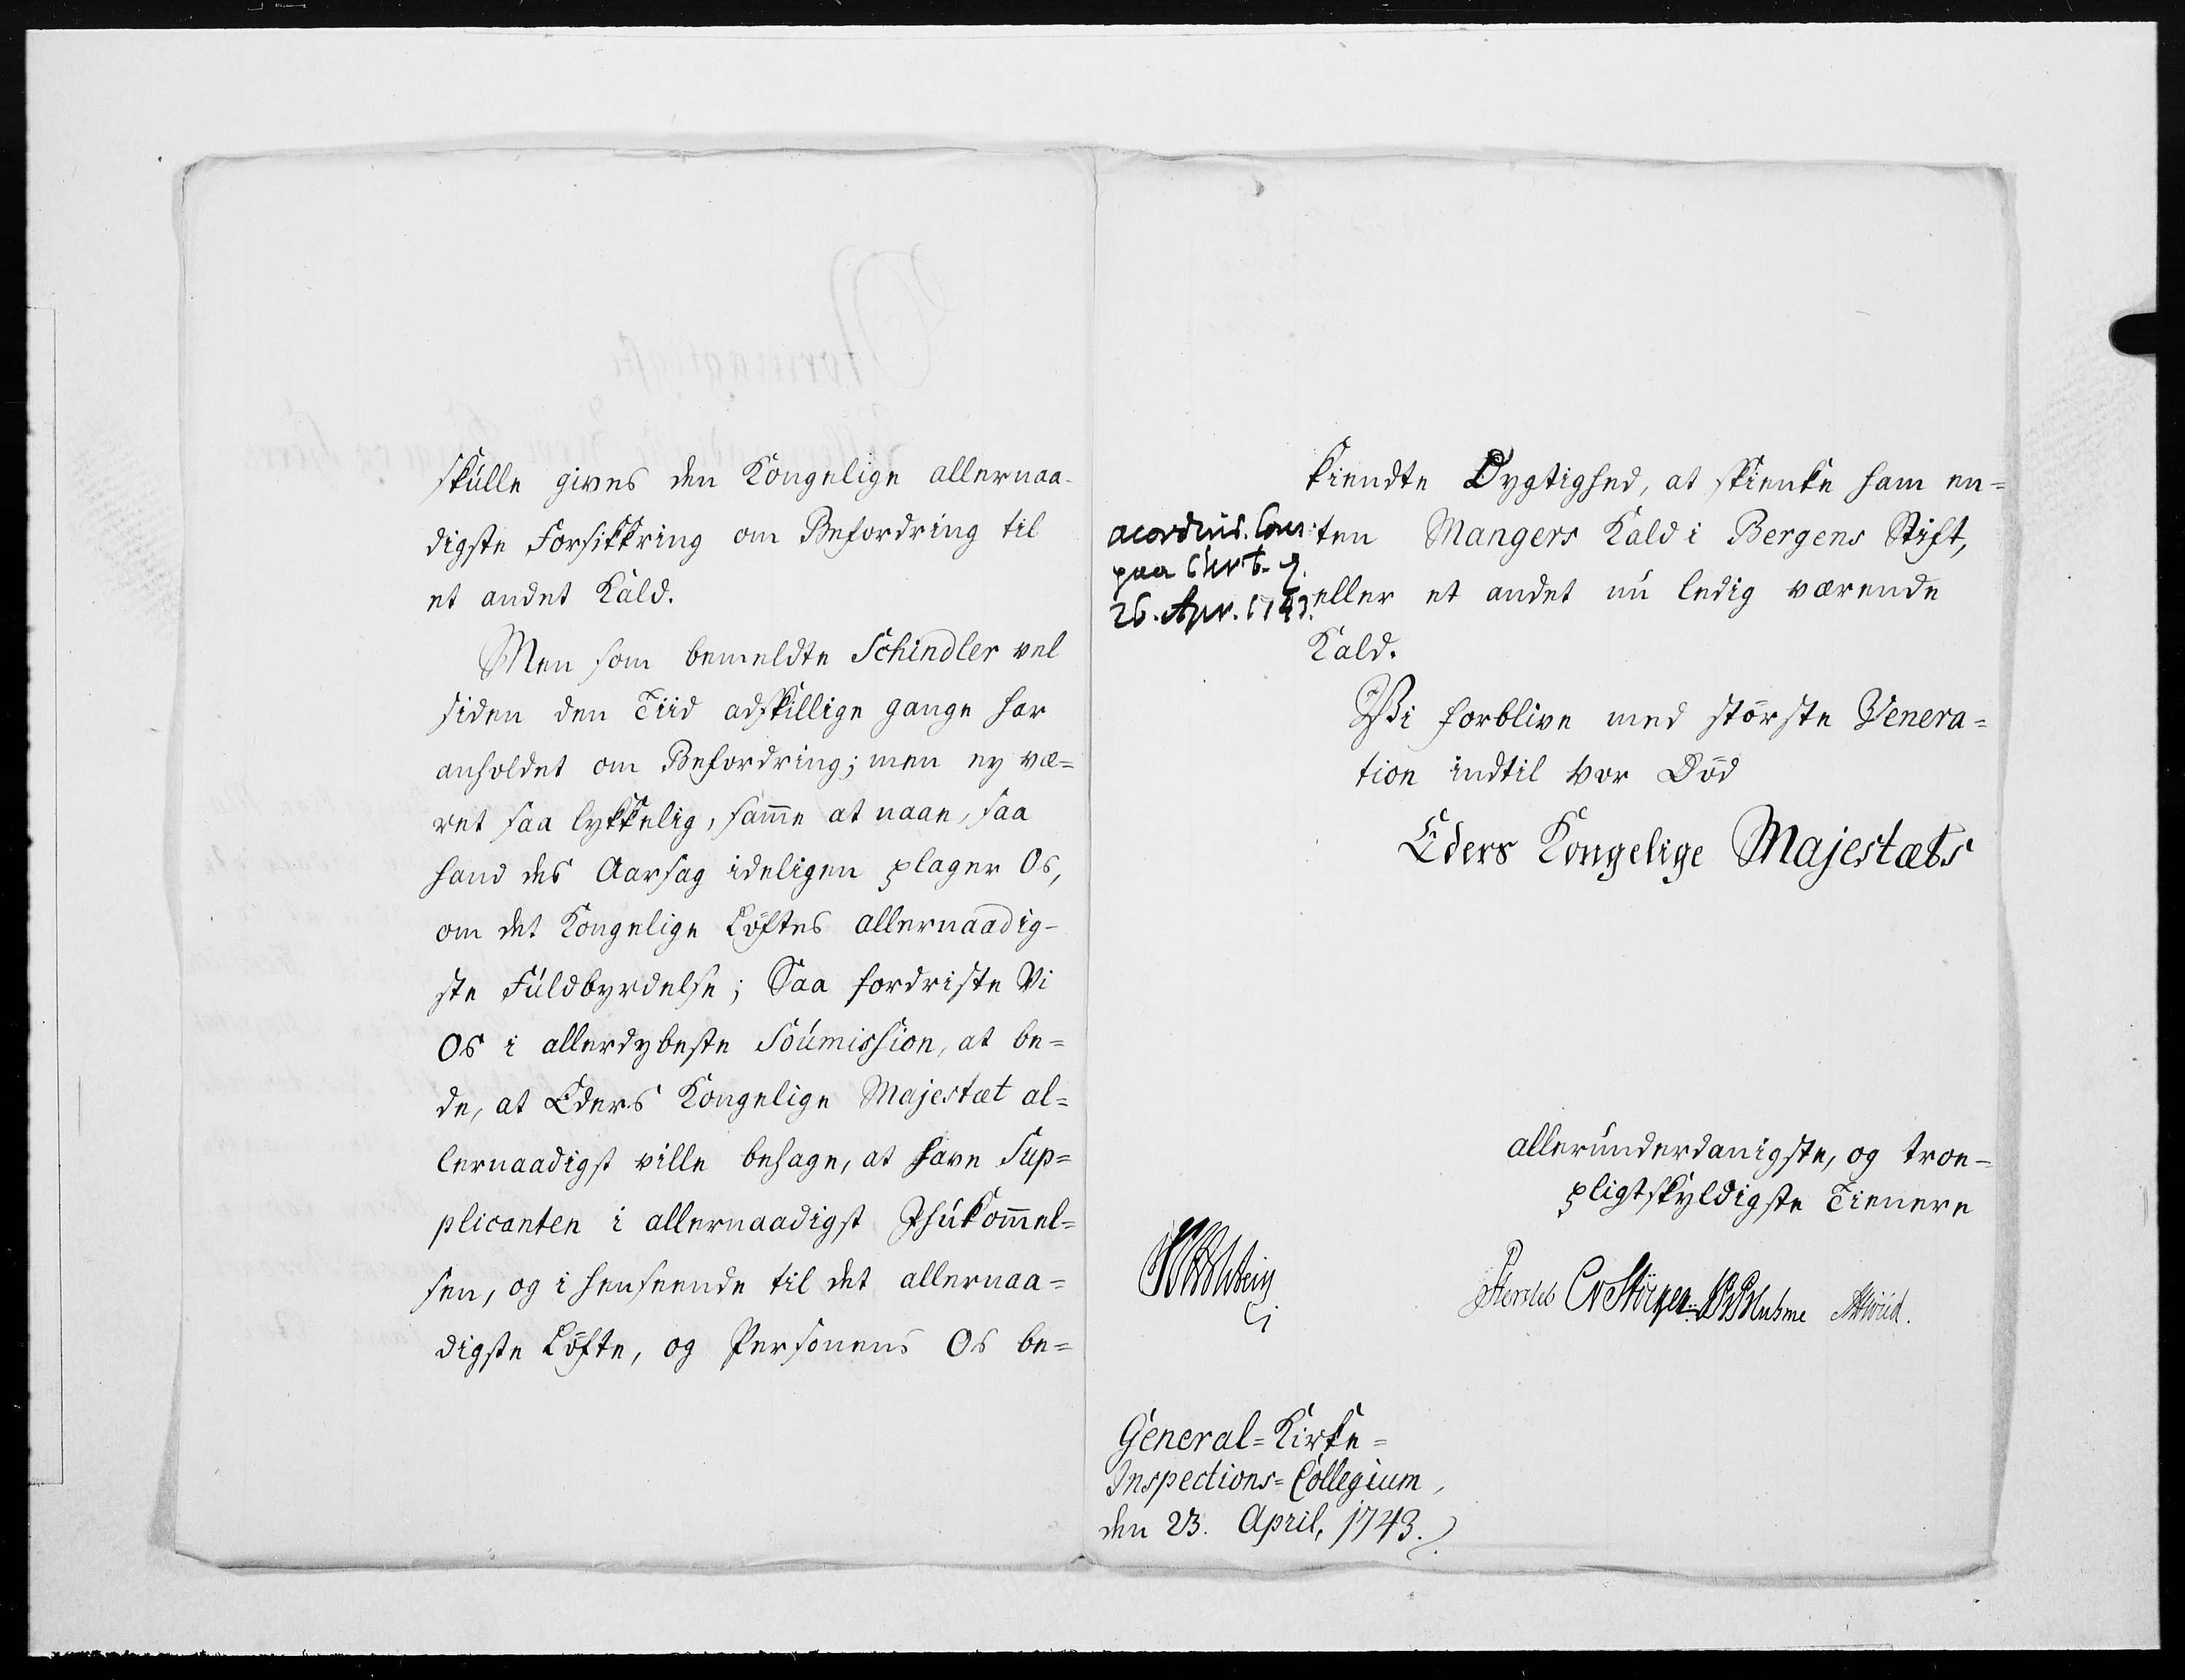 skulle gives den Kongelige allernaa-
digste Forsikkring om Befordring til
et andet Kald.
Men som bemeldte Schindler vel
siden den Tiid adskillige gange har
anholdet om Befordring; men ey væ=
ret saa lykkelig, samme at naae, saa
hand des Aarsag ideligen plager Os,
om det Kongelige Löftes allernaadig-
ste Fuldbyrdelse; Saa fordriste Vi
Os i allerdybeste Soumission, at be=
de, at Eders Kongelige Majestæt al=
lernaadigst ville behage, at have Sup=
plicanten i allernaadigst Ihukommel=
sen, og i henseende til det allernaa=
digste Löfte, og Personens Os be=
kiendte Dygtighed, at skienke ham en=
ten Mangers Kald i Bergens Stift,
eller et andet nu ledig værende
Kald.
paa
26. Apr. 1743.
Vi forblive med störste Venera=
tion indtil vor Död
Eders Kongelige Majestæts
allerunderdanigste, og troe-
pligtskyldigste Tienere
JLHolstein
PHersleb CvStöcken. JBBluhme AHwiid.
General=Kirke=
Inspections=Collegium,
den 23. April, 1743.